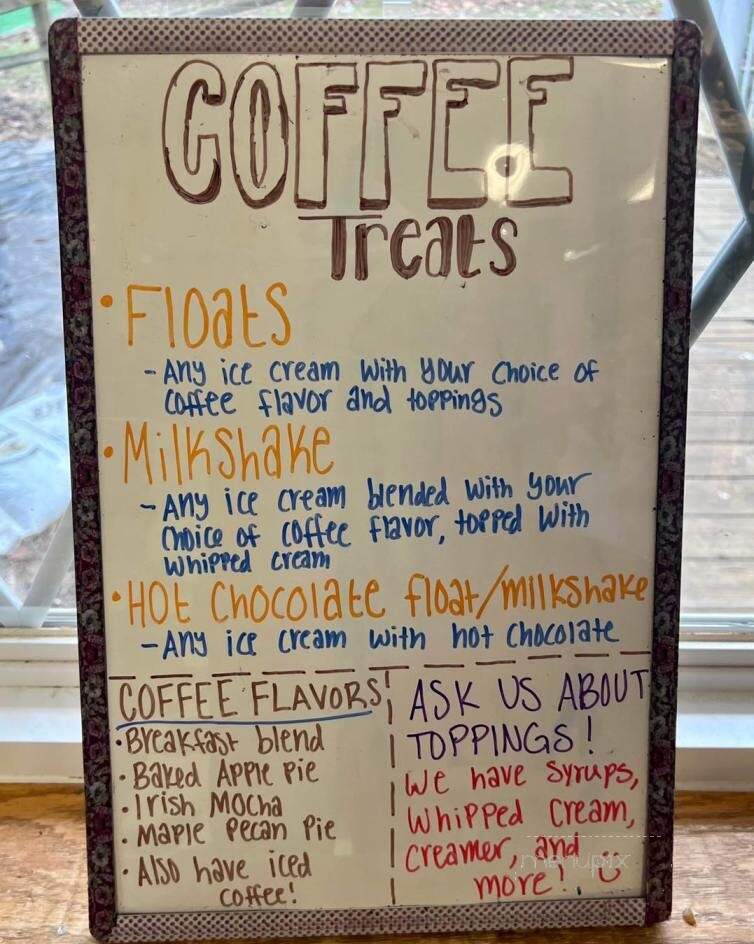 COFFEE
Treats
• Floats
- Any ice cream with your choice of
coffee flavor and toppings
• Milkshake
- Any ice cream blended with your
choice of coffee flavor, topped with
whipped cream
• Hot Chocolate float/milkshake
- Any ice cream with hot chocolate
COFFEE FLAVORS
• Breakfast blend
• Baked Apple Pie
• Irish Mocha
• Maple Pecan Pie
• Also have iced
coffee!
ASK US ABOUT
TOPPINGS!
We have syrups,
Whipped Cream,
creamer, and
more! :)
menupix